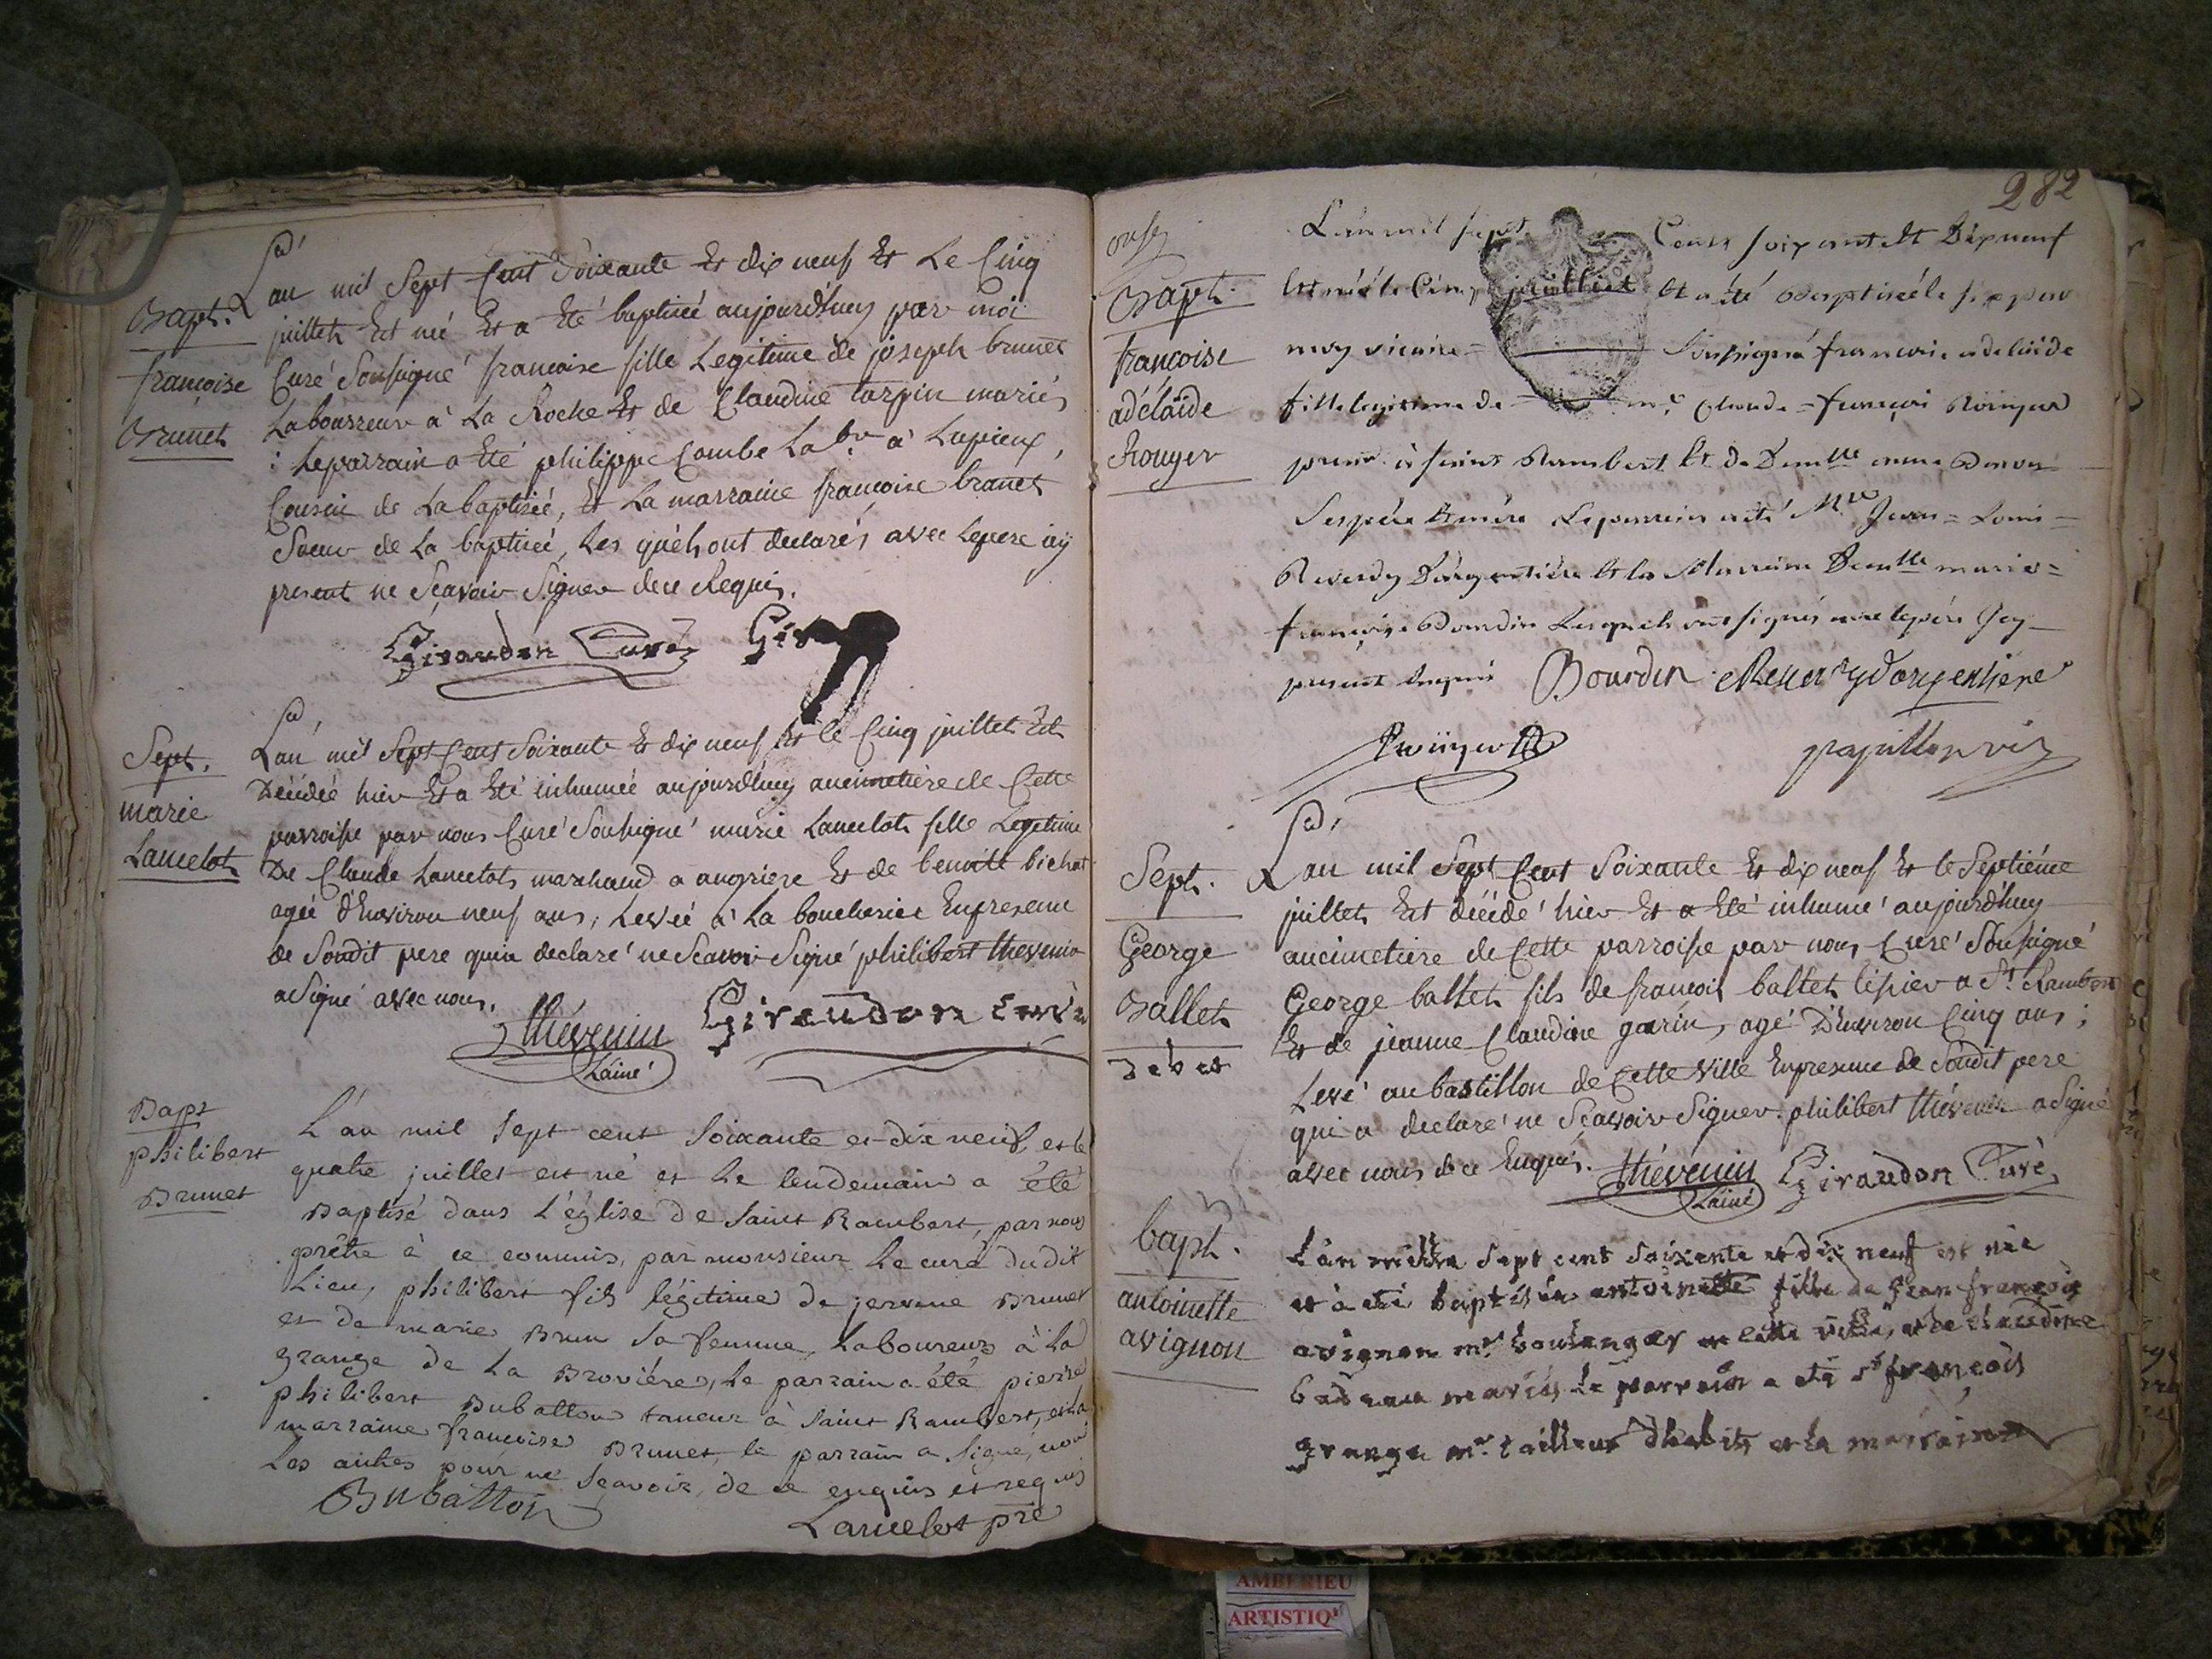 Bapt.
françoise
Brunet
L'an mil Sept Cent Soixante Et dix neuf Et Le Cinq
juillet Est né Et a Eté baptisée aujourd'huy par moi
Curé Soussigné françoise fille Legitime de joseph brunet
Laboureur à La Roche Et de Claudine tarpin mariés
: Le parrain a Eté philippe Combe Lab.r à Lupieux,
Cousin de La baptisée, Et La marraine françoise brunet
Soeur de La baptisée, Les quels ont declarés avec Le pere icy
present ne Sçavoir Signer de ce Requis.
Giraudon Curé Gir
Sept.
marie
Lancelot
L'an mil Sept Cent Soixante Et dix neuf Et le Cinq juillet Est
Décédée hier Et a Eté inhumée aujourd'huy au cimetière de Cette
parroisse par nous Curé Soussigné marie Lancelot fille Legitime
De Claude Lancelot marchand a angriere Et de benoitte bichat
agée d'Environ neuf ans, Levée à La boucherie En presence
de Soudit pere qui a declaré ne Scavoir Signé philibert thevenin
a Signé avec nous.
thévenin Lainé Giraudon Curé
Bapt
philibert
Brunet
L'an mil sept cent soixante et dix neuf, et le
quatre juillet est né et le lendemain a été
Baptisé dans l'église de Saint Rambert, par nous
prêtre à ce commis, par monsieur le curé dudit
Lieu, philibert fils légitime de jerome Brunet
et de marie Brun sa femme, Laboureurs à la
grange de la Brovières, le parrain a été pierre
philibert Dubatton taneur à Saint Rambert, et la
marraine françoise Brunet, le parrain a signé, non
Les autres pour ne Sçavoir, de ce enquis et requis
Dubatton Lancelot pre
282
Bapt.
françoise
adélaïde
Rouyer
L'an mil sept Cents soixante Et Dix neuf
Est née le Cinq juilliet Et a été Baptisée le six par
moy vicaire = Soussigné françoise adelaide
fille legitime de m.e Claude = françois Rouyer
à saint Rambert Et de Demlle anne
Ses père Et mère Le parrain a été Mre Jean = Louis =
Reverdy D'argentière Et la Marraine Demlle marie =
françoise Bourdin Lesquels ont signés avec le père Icy
present Enquis Bourdin Reverdy d'argentiere
papillon vic
Sept.
George
Ballet
L'an mil Sept Cent Soixante Et dix neuf Et le Septième
juillet Est décédé hier Et a Eté inhumé aujourd'huy
au cimetiere de Cette parroisse par nous Curé Soussigné
George ballet fils de françois ballet tisier a St Rambert
Et de jeanne Claudine garin, agé D'Environ Cinq ans;
Levé au bastillon de Cette Ville En presence de Soudit pere
qui a declaré ne Sçavoir Signer. philibert thévenin a Signé
avec nous de ce Enquis. thévenin Lainé Giraudon Curé
bapt.
antoinette
avignon
L'an mille Sept cent Soixente et dix neuf est née
et à eté baptisée antoinette fille de jean françois
avignon m.e boulanger en cette ville, et de claudine
mariés le parrain a eté Sr françois
grange m.e tailleur d'habits et la marraine
AMBERIEU
ARTISTIQ